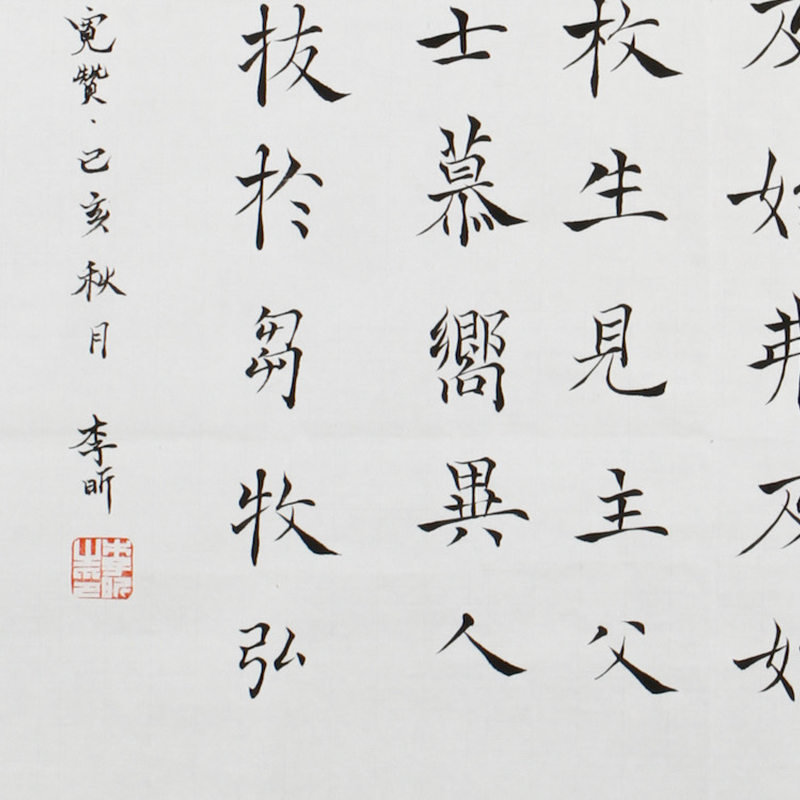 如弗及始
枚生見主父
士慕嚮異人
拔於芻牧弘
寬贊、己亥秋月 李昕